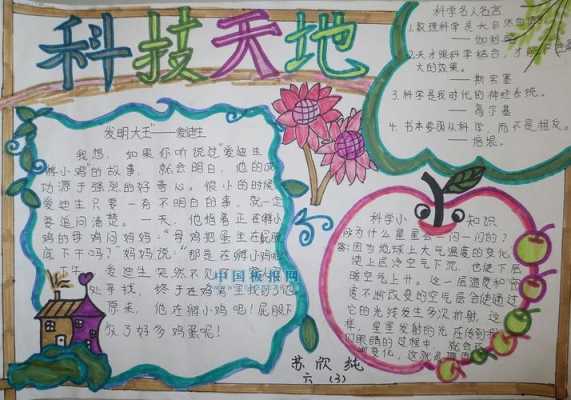 科技天地
发明大王"——爱迪生
我想，如果你听说过"爱迪生
孵小鸡"的故事，就会明白，他的成
功源于强烈的好奇心。很小的时候
爱迪生只要一有不明白的事，就一定
要追问清楚。一天，他指着正在孵小
鸡的母鸡问妈妈："母鸡把蛋坐在屁股
底下干吗？"妈妈说："那是在孵小鸡
爱迪生突然不见
处寻找，终于在鸡窝里找到了他
原来，他在孵小鸡呢！屁股下
放了好多鸡蛋呢！
中国板报网
科学名人名言
1.数理科学是大自然的
——伽利略
2.天才跟科学结合，才能
大的效果。
——斯宾塞
3.科学是我时代的神经系统。
——高尔基
4.书本要源从科学，而不是相反。
——培根。
科学小知识
问为什么星星会一闪一闪的？
答:因为地球上大气温度的变化
使上层冷空气下沉，也使下层
暖空气上升。这一层温度和密
度不断改变的空气层会使通过
它的光线发生多次折射，这
样，星星发射的光在传到我
们眼睛的过程中，就会
变化，这就
苏欣纯
六（3）